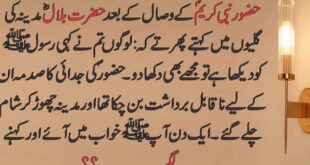 حضور نبی کریمؐ کے وصال کے بعد حضرت بلالؓ مدینہ کی
گلیوں میں کہتے پھرتے کہ: لوگوں تم نے کہی رسولﷺ
کو دیکھا ہے تو مجھے بھی دکھا دو۔ حضورؐ کی جدائی کا صدمہ ان
کے لیے نا قابل برداشت بن چکا تھا اور مدینہ چھوڑ کر شام
چلے گئے۔ ایک دن آپﷺ خواب میں آئے اور کہنے
؟؟